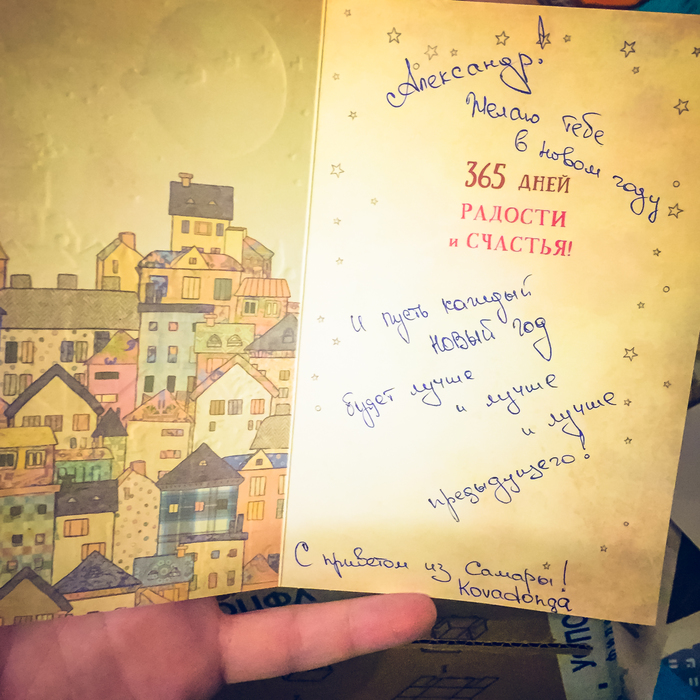 Александр!
Желаю тебе
в новом году
365 ДНЕЙ
РАДОСТИ
и СЧАСТЬЯ!
И пусть каждый
новый год
будет лучше
и лучше
и лучше
предыдущего!
С приветом из Самары!
Kovadonga